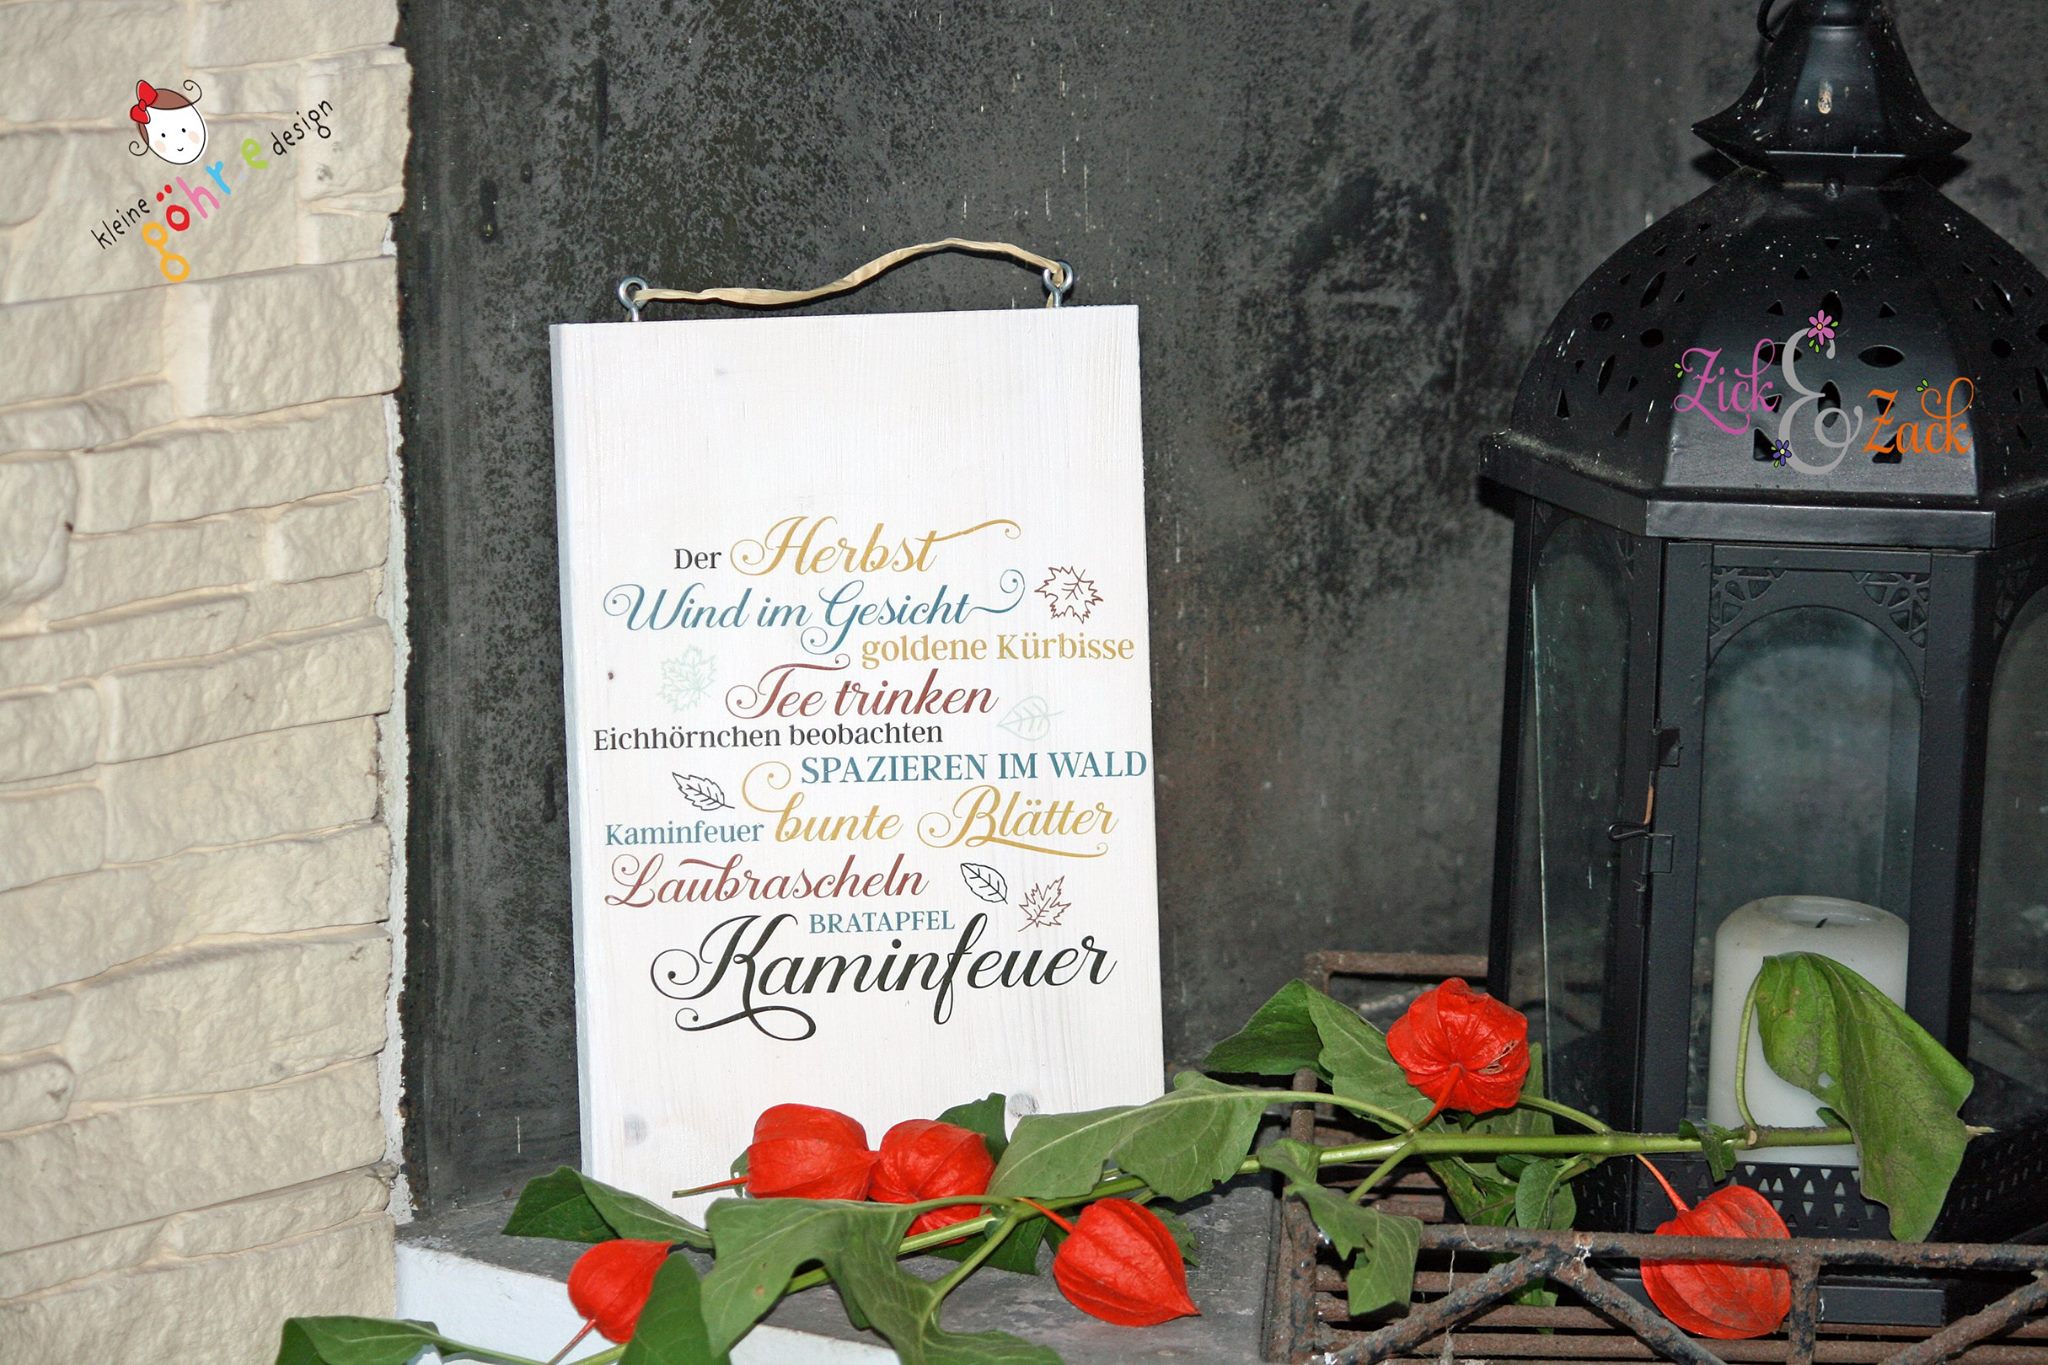 kleine göhr.e design
Zick & Zack
Der Herbst
Wind im Gesicht
goldene Kürbisse
Tee trinken
Eichhörnchen beobachten
SPAZIEREN IM WALD
Kaminfeuer bunte Blätter
Laubrascheln
BRATAPFEL
Kaminfeuer